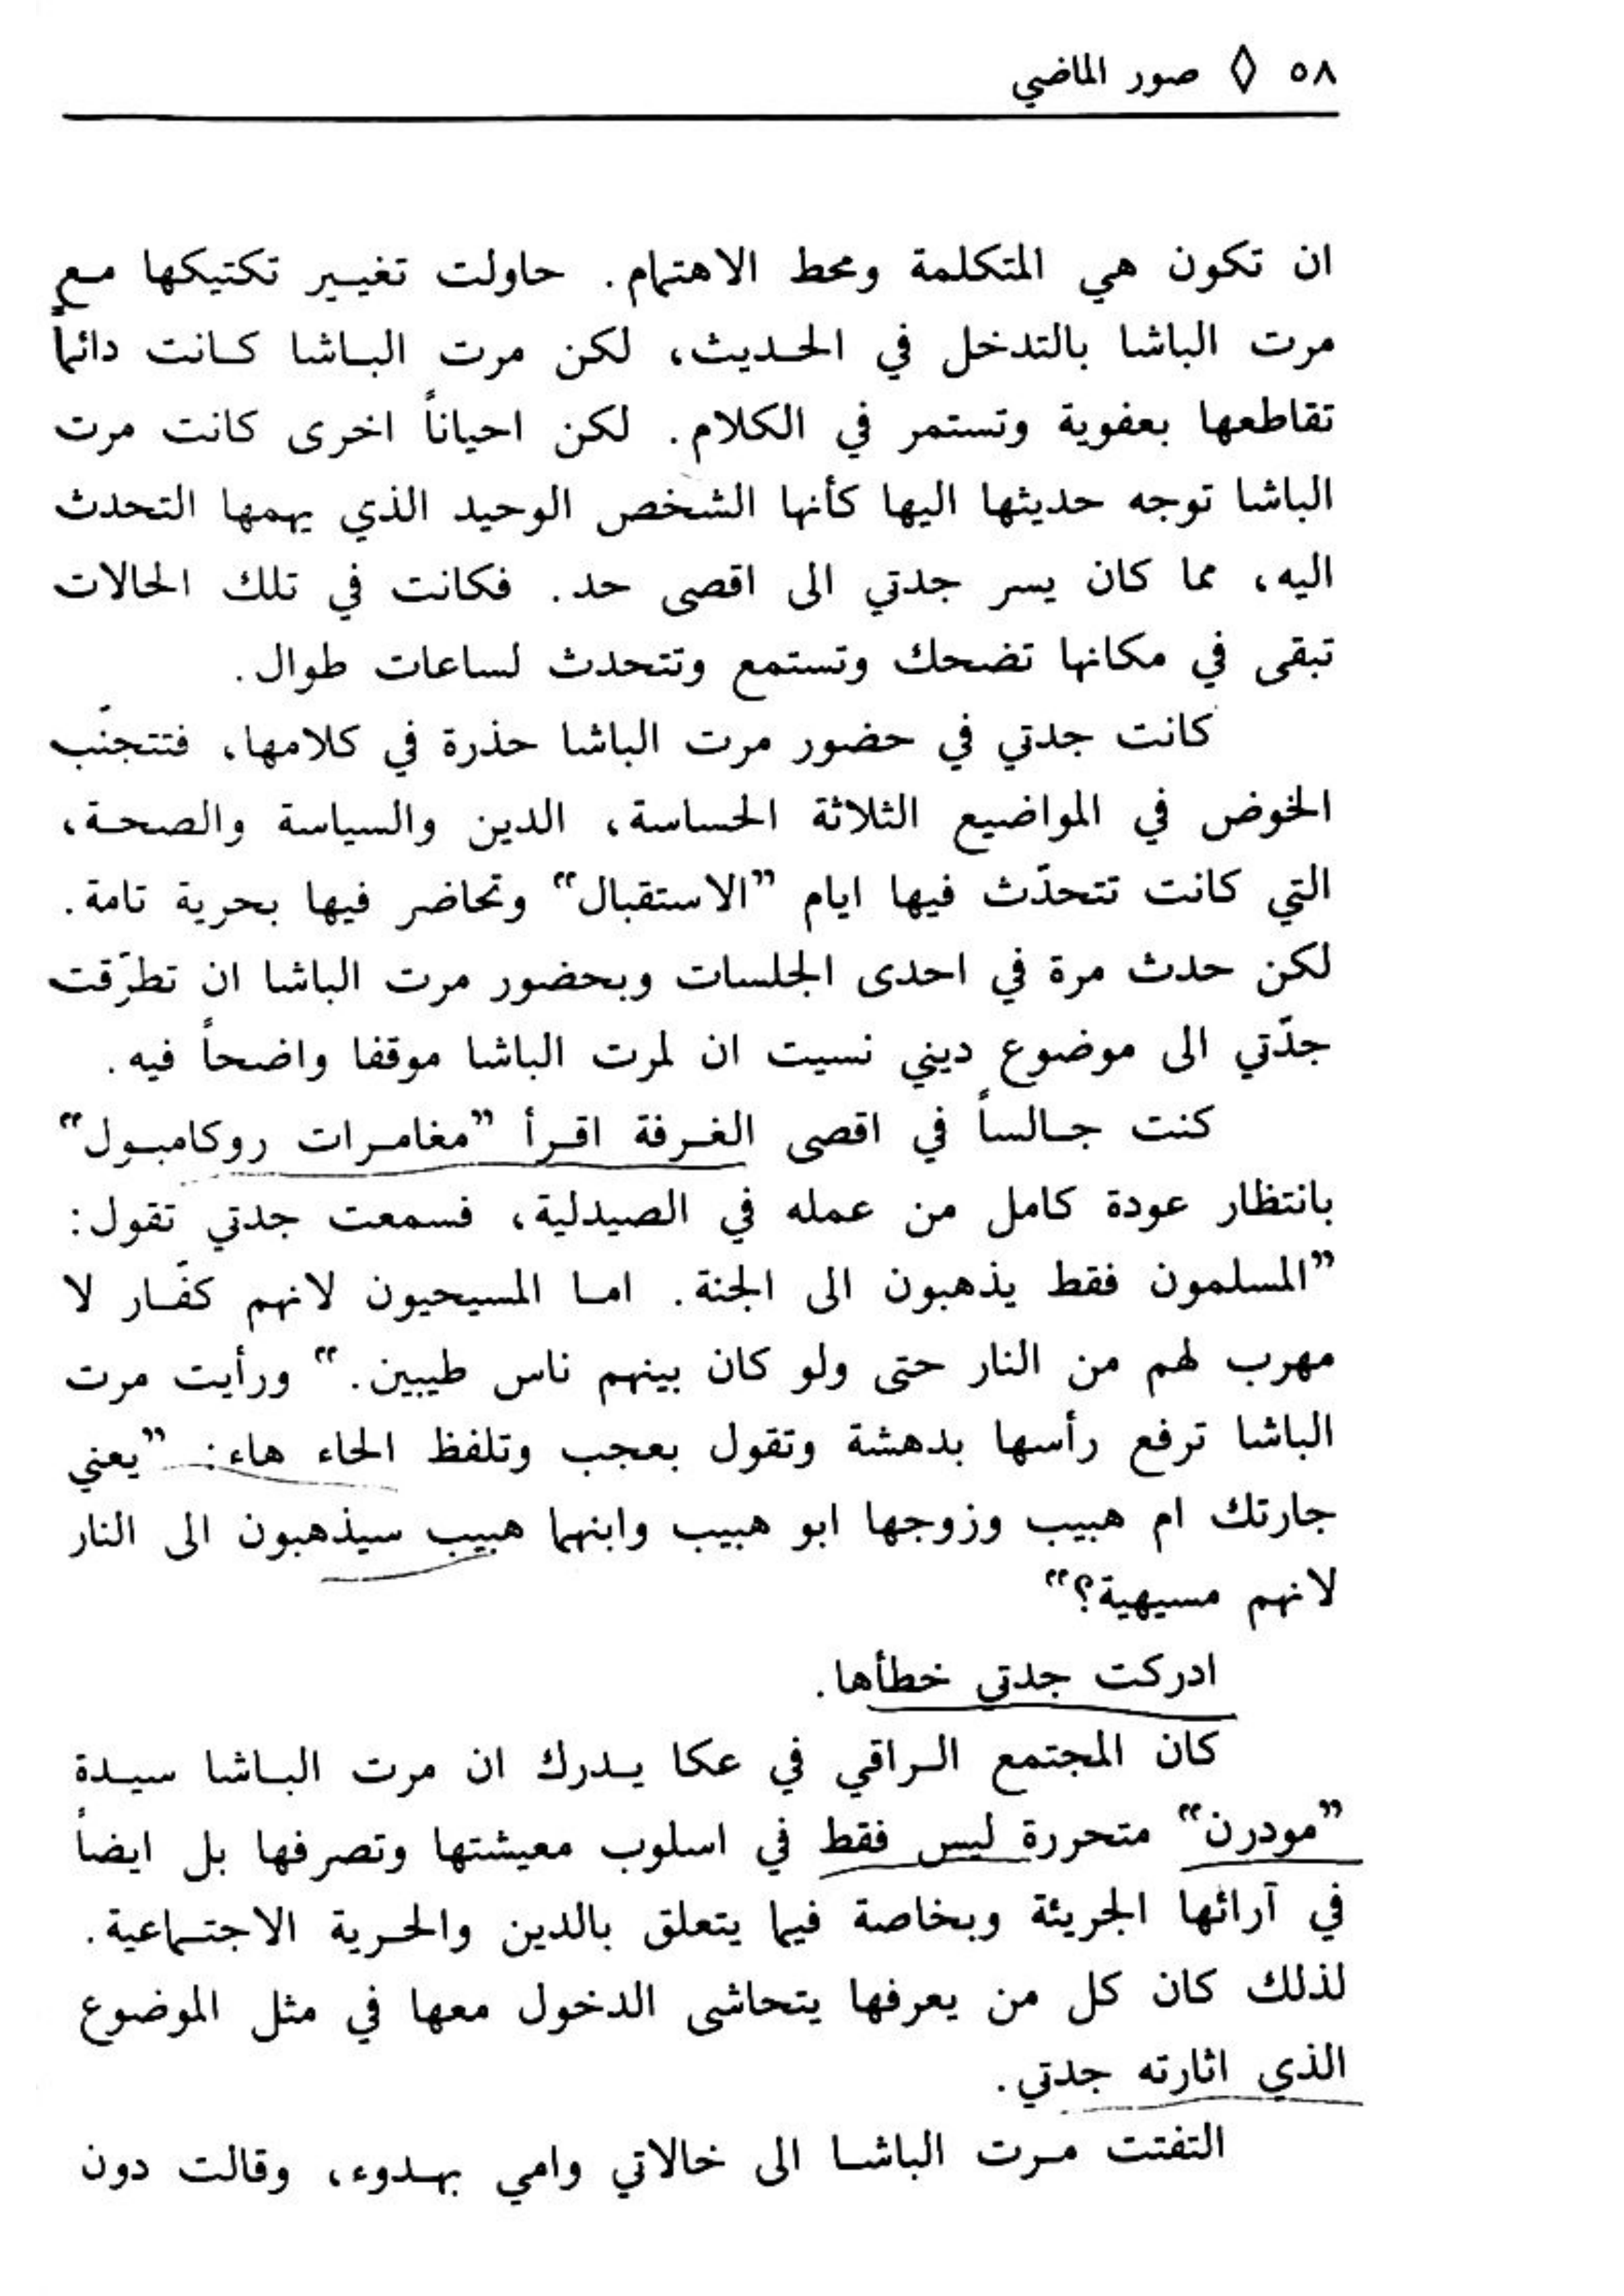 ٥٨ ◊ صور الماضي
ان تكون هي المتكلمة ومحط الاهتمام. حاولت تغيير تكتيكها مع
مرت الباشا بالتدخل في الحديث، لكن مرت الباشا كانت دائماً
تقاطعها بعفوية وتستمر في الكلام. لكن احياناً اخرى كانت مرت
الباشا توجه حديثها اليها كأنها الشخص الوحيد الذي يهمها التحدث
اليه، مما كان يسر جدتي الى اقصى حد. فكانت في تلك الحالات
تبقى في مكانها تضحك وتستمع وتتحدث لساعات طوال.
كانت جدتي في حضور مرت الباشا حذرة في كلامها، فتتجنّب
الخوض في المواضيع الثلاثة الحساسة، الدين والسياسة والصحة،
التي كانت تتحدّث فيها ايام ”الاستقبال“ وتحاضر فيها بحرية تامة.
لكن حدث مرة في احدى الجلسات وبحضور مرت الباشا ان تطرّقت
جدّتي الى موضوع ديني نسيت ان لمرت الباشا موقفا واضحاً فيه.
كنت جالساً في اقصى الغرفة اقرأ ”مغامرات روكامبول“
بانتظار عودة كامل من عمله في الصيدلية، فسمعت جدتي تقول:
”المسلمون فقط يذهبون الى الجنة. اما المسيحيون لانهم كفّار لا
مهرب لهم من النار حتى ولو كان بينهم ناس طيبين.“ ورأيت مرت
الباشا ترفع رأسها بدهشة وتقول بعجب وتلفظ الحاء هاء: ”يعني
جارتك ام هبيب وزوجها ابو هبيب وابنهما هبيب سيذهبون الى النار
لانهم مسيهية؟“
ادركت جدتي خطأها.
كان المجتمع الراقي في عكا يدرك ان مرت الباشا سيدة
”مودرن“ متحررة ليس فقط في اسلوب معيشتها وتصرفها بل ايضاً
في آرائها الجريئة وبخاصة فيما يتعلق بالدين والحرية الاجتماعية.
لذلك كان كل من يعرفها يتحاشى الدخول معها في مثل الموضوع
الذي اثارته جدتي.
التفتت مرت الباشا الى خالاتي وامي بهدوء، وقالت دون